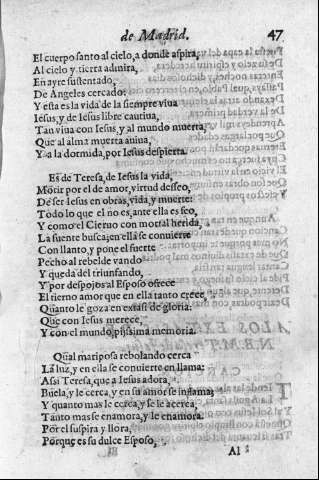 de Madrid. 47
El cuerpo santo al cielo, a donde aspira,
Al cielo y tierra admira,
En ayre sustentado,
De Angeles cercado:
Y esta es la vida de la siempre viua
Iesus, y de Iesus libre cautiua,
Tan viua con Iesus, y al mundo muerta,
Que al alma muerta auiua,
Y a la dormida, por Iesus despierta.
Es de Teresa, de Iesus la vida,
Morir por el de amor, virtud desseo,
De ser Iesus en obras, vida, y muerte:
Todo lo que el no es, ante ella es feo,
Y como el Cieruo con mortal herida,
La fuente busca, en ella se conuierte
Con llanto, y pone el fuerte
Pecho al rebelde vando
Y queda del triunfando,
Y por despojos al Esposo ofrece
El tierno amor que en ella tanto crece,
Quanto le goza en extasi de gloria:
Que con Iesus merece,
Y con el mundo, pijssima memoria.
Qual mariposa rebolando cerca
La luz, y en ella se conuierte en llama:
Assi Teresa, que a Iesus adora,
Buela, y le cerca, y en su amor se inflama;
Y quanto mas le cerca, y se le acerca,
Tanto mas se enamora, y le enamora.
Por el suspira y llora,
Porque es su dulce Esposo,
Al